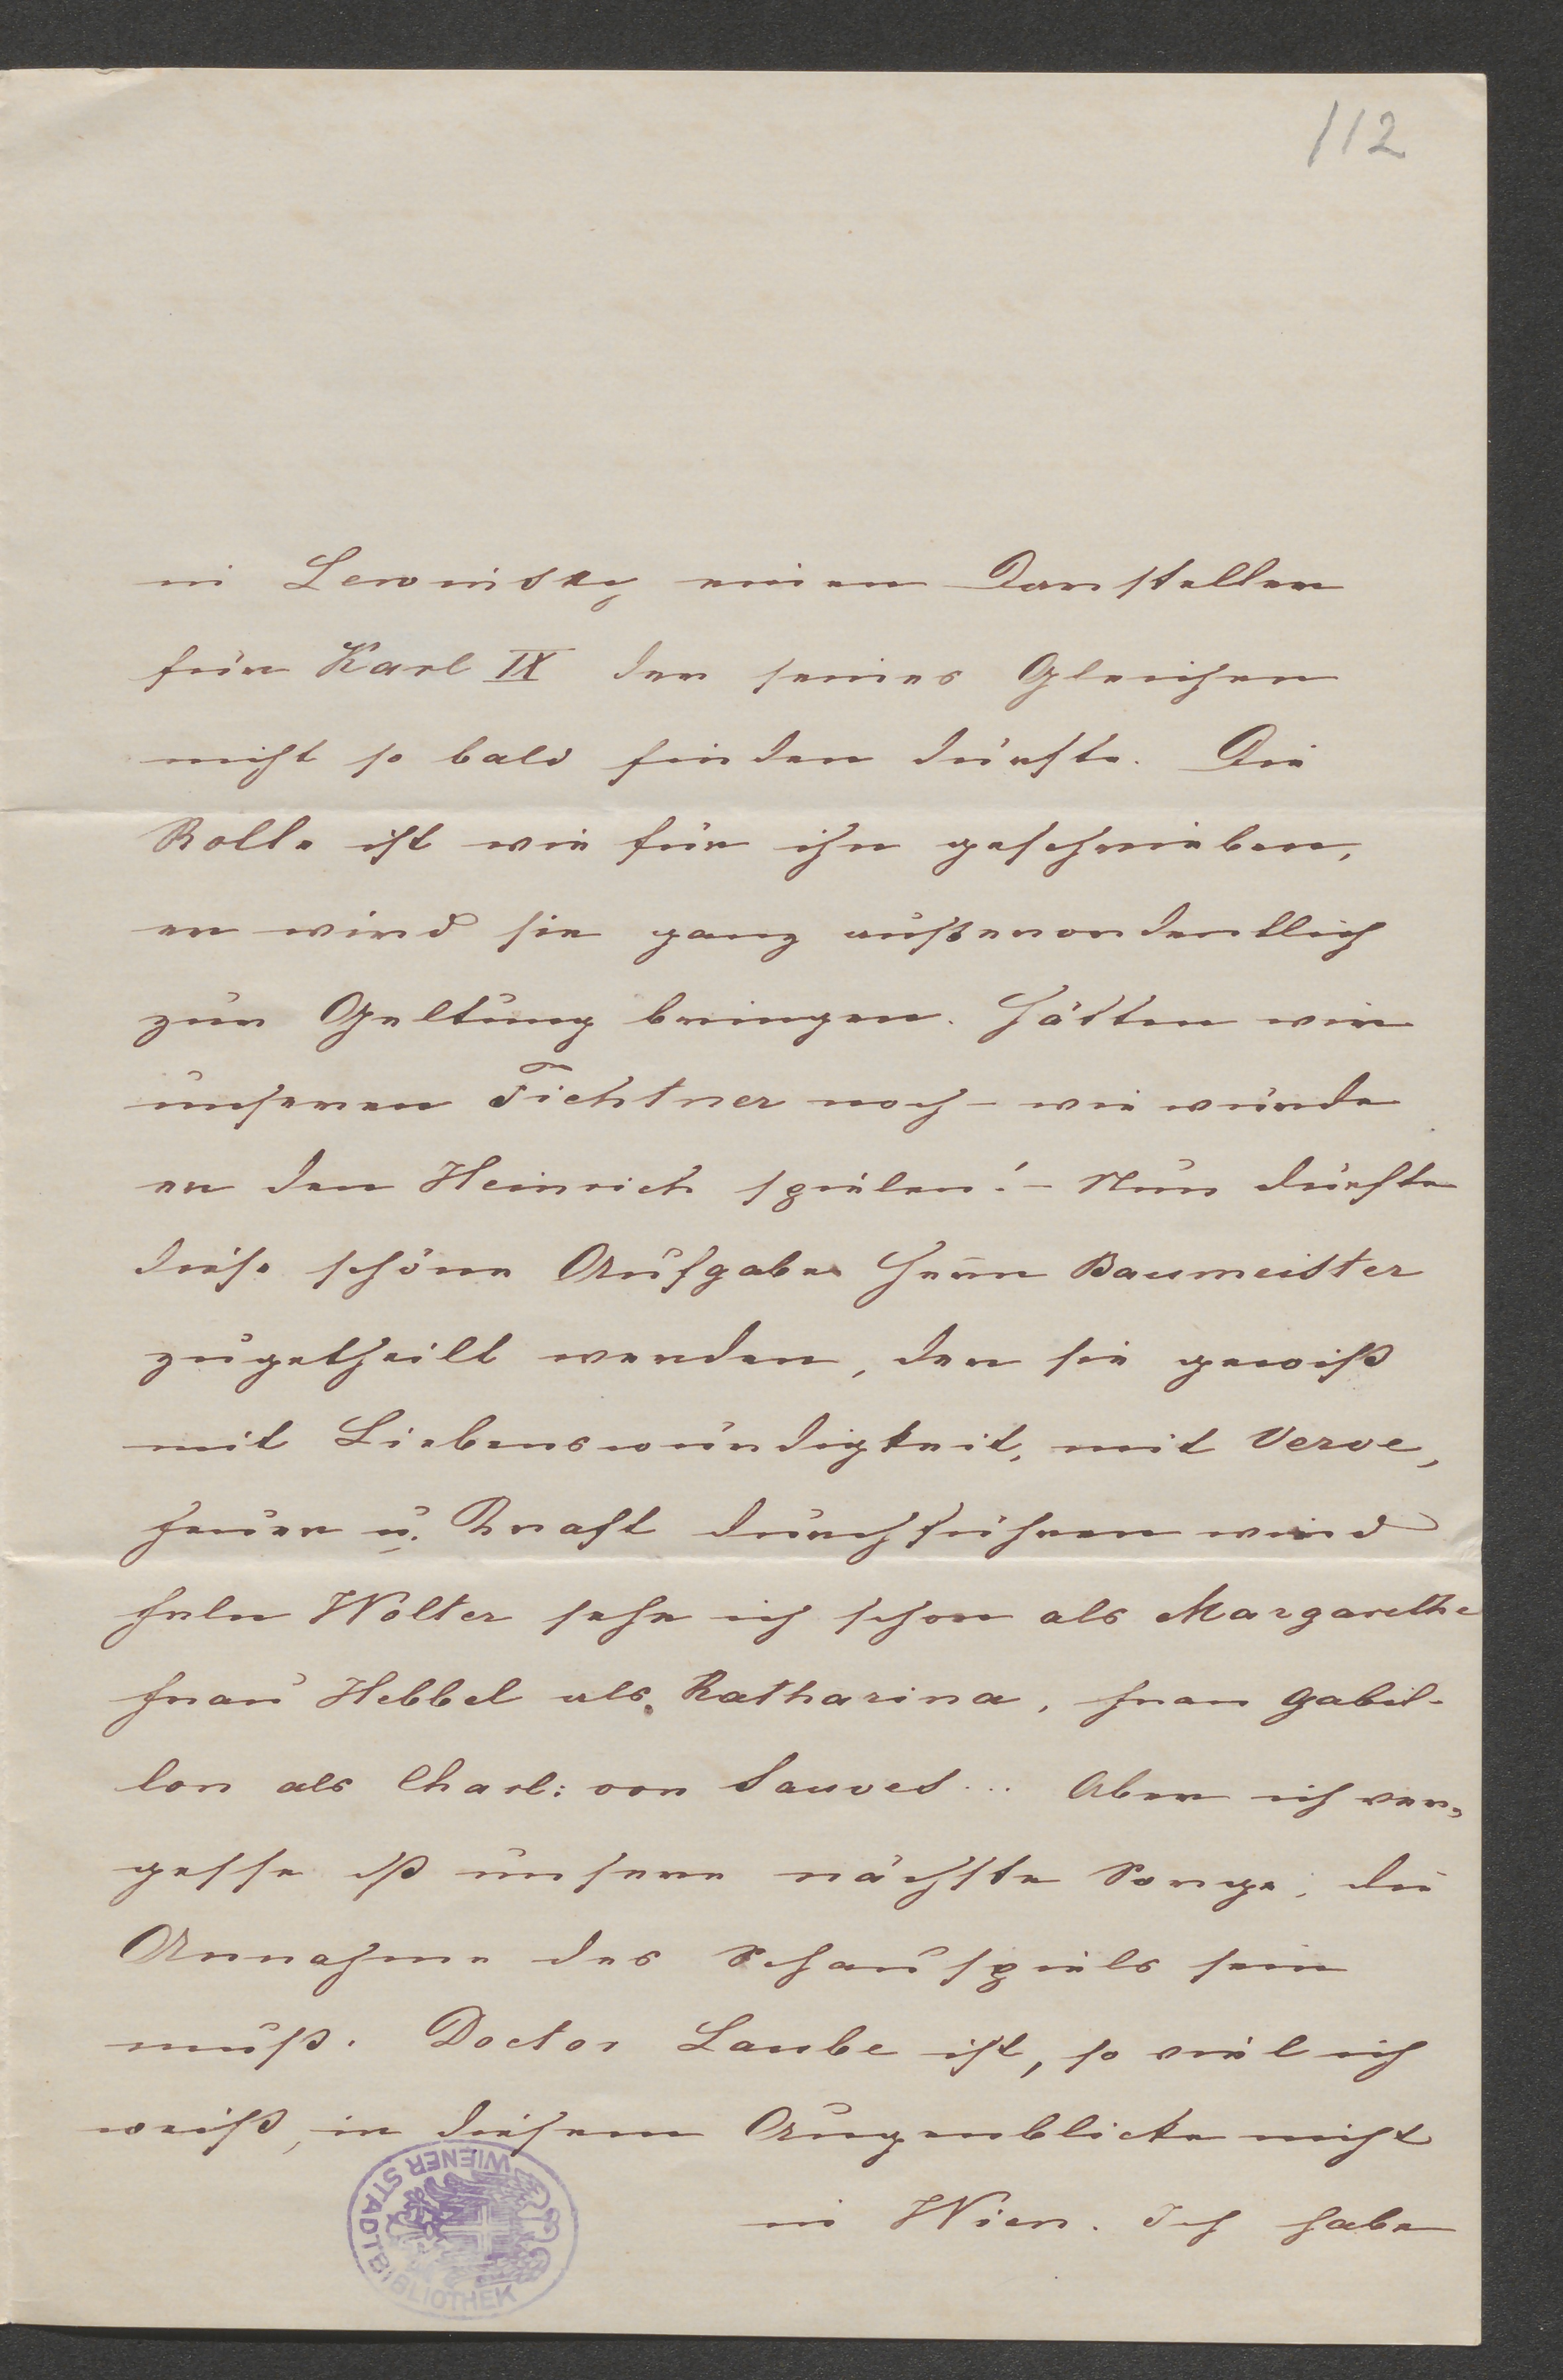 112
in Lewinsky einen Darsteller
für Karl IX der seines Gleichen
nicht so bald finden dürfte. Die
Rolle ist wie für ihn geschrieben,
er wird sie ganz außerordentlich
zur Geltung bringen. Hätten wir
unseren Fichtner noch – wie würde
er den Heinrich spielen! – Nun dürfte
diese schöne Aufgabe Herrn Baumeister
zugetheilt werden, der sie gewiß
mit Liebenswürdigkeit, mit Verve,
Feuer u. Kraft durchführen wird
Freln Wolter sehe ich schon als Margarethe
Frau Hebbel als Katharina, Frau Gabil-
lon als Charl: von Sauves... Aber ich ver-
gesse dß unsere nächste Sorge, die
Annahme des Schauspiels sein
muß. Doctor Laube ist, so viel ich
weiß, in diesem Augenblicke nicht
in Wien. Ich habe
WIENER STADTBIBLIOTHEK